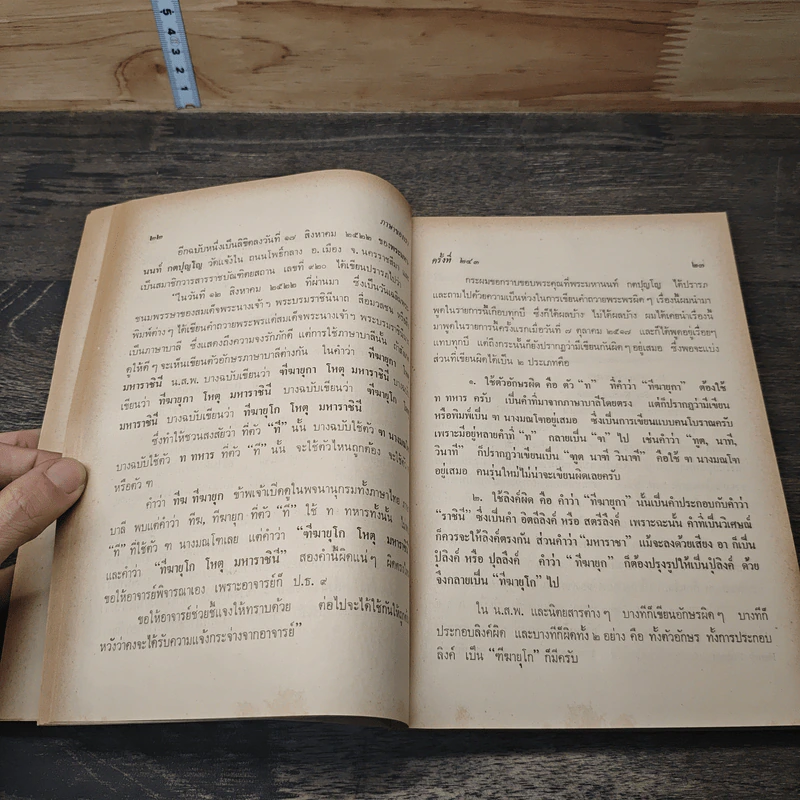 5
4
3
2
1
๒๒
ภาษาของเรา
อีกฉบับหนึ่งเป็นลิขิตลงวันที่ ๑๗ สิงหาคม ๒๕๒๒ ของพระมหา
นนท์ กตปุญโญ วัดแจ้งใน ถนนโพธิ์กลาง อ. เมือง จ. นครราชสีมา
เป็นสมาชิกวารสารราชบัณฑิตยสถาน เลขที่ ๙๒๐ ได้เขียนปรารภไปว่า
"ในวันที่ ๑๒ สิงหาคม ๒๕๒๒ ที่ผ่านมา ซึ่งเป็นวันเฉลิม
ชนมพรรษาของสมเด็จพระนางเจ้าฯ พระบรมราชินีนาถ สื่อมวลชน
พิมพ์ต่างๆ ได้เขียนคำถวายพระพรแด่สมเด็จพระนางเจ้าฯ พระบรมราชินี
เป็นภาษาบาลี ซึ่งแสดงถึงความจงรักภักดี แต่การใช้ภาษาบาลีนั้น
ดูให้ดีๆ จะเห็นเขียนตัวอักษรภาษาบาลีต่างกัน ในคำว่า ทีฆายุกา โหตุ
มหาราชินี น.ส.พ. บางฉบับเขียนว่า ฑีฆายุกา โหตุ มหาราชินี
เขียนว่า ทีฆายุโก โหตุ มหาราชินี บางฉบับเขียนว่า ฑีฆายุโก โหตุ
มหาราชินี บางฉบับเขียนว่า ทีฆายุโก โหตุ มหาราชินี
ซึ่งทำให้ชวนสงสัยว่า ที่ตัว "ที" นั้น บางฉบับใช้ตัว ฑ นางมณโฑ
บางฉบับใช้ตัว ท ทหาร ที่ตัว "ที" นั้น จะใช้ตัวไหนถูกต้อง จะใช้ตัว
หรือตัว ฑ
คำว่า ทีฆ ทีฆายุก ข้าพเจ้าเปิดดูในพจนานุกรมทั้งภาษาไทย
บาลี พบแต่คำว่า ทีฆ, ทีฆายุก ที่ตัว "ที" ใช้ ท ทหารทั้งนั้น
"ที" ที่ใช้ตัว ฑ นางมณโฑเลย แต่คำว่า "ฑีฆายุโก โหตุ มหาราชินี"
และคำว่า "ทีฆายุโก โหตุ มหาราชินี" สองคำนี้ผิดแน่ๆ
ขอให้อาจารย์พิจารณาเอง เพราะอาจารย์ก็ ป.ธ. ๙
ขอให้อาจารย์ช่วยชี้แจงให้ทราบด้วย ต่อไปจะได้ใช้กันให้ถูกต้อง
หวังว่าคงจะได้รับความแจ้งกระจ่างจากอาจารย์"
ครั้งที่ ๒๔๓
๒๓
กระผมขอกราบขอบพระคุณที่พระมหานนท์ กตปุญโญ ได้ปรารภ
และถามไปด้วยความเป็นห่วงในการเขียนคำถวายพระพรผิดๆ เรื่องนี้ผมนำมา
พูดในรายการนี้เกือบทุกปี ซึ่งก็ได้ผลบ้าง ไม่ได้ผลบ้าง ผมได้เคยนำเรื่องนี้
มาพูดในรายการนี้ครั้งแรกเมื่อวันที่ ๗ ตุลาคม ๒๕๑๗ และก็ได้พูดอยู่เรื่อยๆ
แทบทุกปี แต่ถึงกระนั้นก็ยังปรากฏว่ามีเขียนกันผิดๆ อยู่เสมอ ซึ่งพอจะแบ่ง
ส่วนที่เขียนผิดได้เป็น ๒ ประเภทคือ
๑. ใช้ตัวอักษรผิด คือ ตัว "ท" ที่คำว่า "ทีฆายุกา" ต้องใช้
ท ทหาร ครับ เป็นคำที่มาจากภาษาบาลีโดยตรง แต่ก็ปรากฏว่ามีเขียน
หรือพิมพ์เป็น ฑ นางมณโฑอยู่เสมอ ซึ่งเป็นการเขียนแบบคนโบราณครับ
เพราะมีอยู่หลายคำที่ "ท" กลายเป็น "ฑ" ไป เช่นคำว่า "ทูต, นาที,
วินาที" ก็ปรากฏว่าเขียนเป็น "ฑูต นาฑี วินาฑี" คือใช้ ฑ นางมณโฑ
อยู่เสมอ คนรุ่นใหม่ไม่น่าจะเขียนผิดเลยครับ
๒. ใช้ลิงค์ผิด คือ คำว่า "ทีฆายุกา" นั้นเป็นคำประกอบกับคำว่า
"ราชินี" ซึ่งเป็นคำ อิตถีลิงค์ หรือ สตรีลิงค์ เพราะฉะนั้น คำที่เป็นวิเศษณ์
ก็ควรจะให้ลิงค์ตรงกัน ส่วนคำว่า "มหาราชา" แม้จะลงด้วยเสียง อา ก็เป็น
ปุํลิงค์ หรือ ปุลลิงค์ คำว่า "ทีฆายุก" ก็ต้องปรุงรูปให้เป็นปุํลิงค์ ด้วย
จึงกลายเป็น "ทีฆายุโก" ไป
ใน น.ส.พ. และนิตยสารต่างๆ บางทีก็เขียนอักษรผิดๆ บางทีก็
ประกอบลิงค์ผิด และบางทีก็ผิดทั้ง ๒ อย่าง คือ ทั้งตัวอักษร ทั้งการประกอบ
ลิงค์ เป็น "ฑีฆายุโก" ก็มีครับ